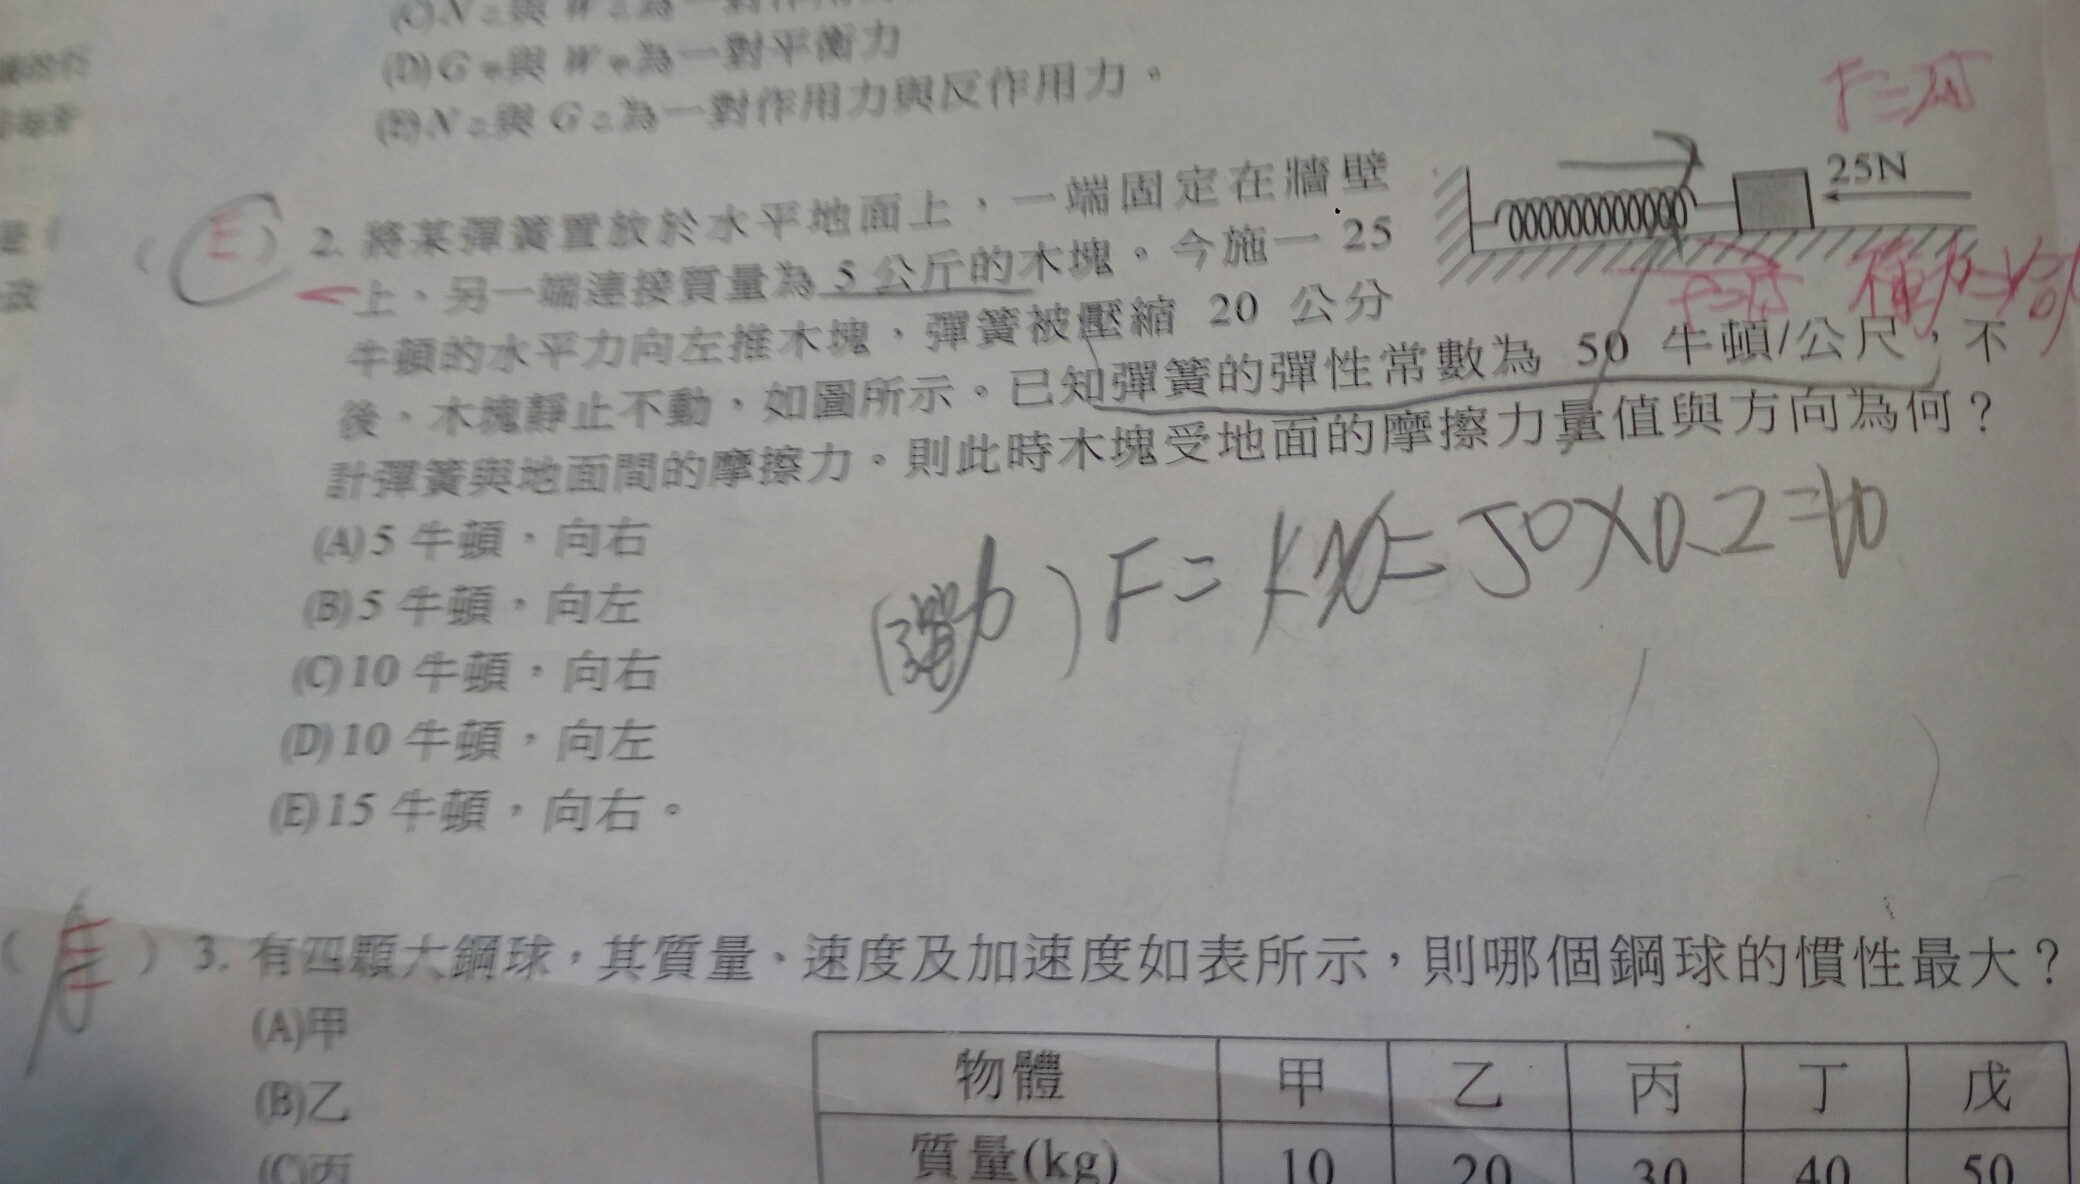 (D)G甲與W甲為一對平衡力
(E)N乙與G乙為一對作用力與反作用力。
F=15
(E) 2. 將某彈簧置放於水平地面上，一端固定在牆壁
25N
上，另一端連接質量為5公斤的木塊。今施一25
牛頓的水平力向左推木塊，彈簧被壓縮 20 公分
後，木塊靜止不動，如圖所示。已知彈簧的彈性常數為 50 牛頓/公尺，不
計彈簧與地面間的摩擦力。則此時木塊受地面的摩擦力量值與方向為何？
(A)5牛頓，向右
(B)5牛頓，向左
(C)10牛頓，向右
(D)10牛頓，向左
(E)15牛頓，向右。
(彈力) F=kx=50×0.2=10
(E) 3. 有四顆大鋼球，其質量、速度及加速度如表所示，則哪個鋼球的慣性最大？
(A)甲
(B)乙
(C)丙
物體 甲 乙 丙 丁 戊
質量(kg) 10 20 30 40 50